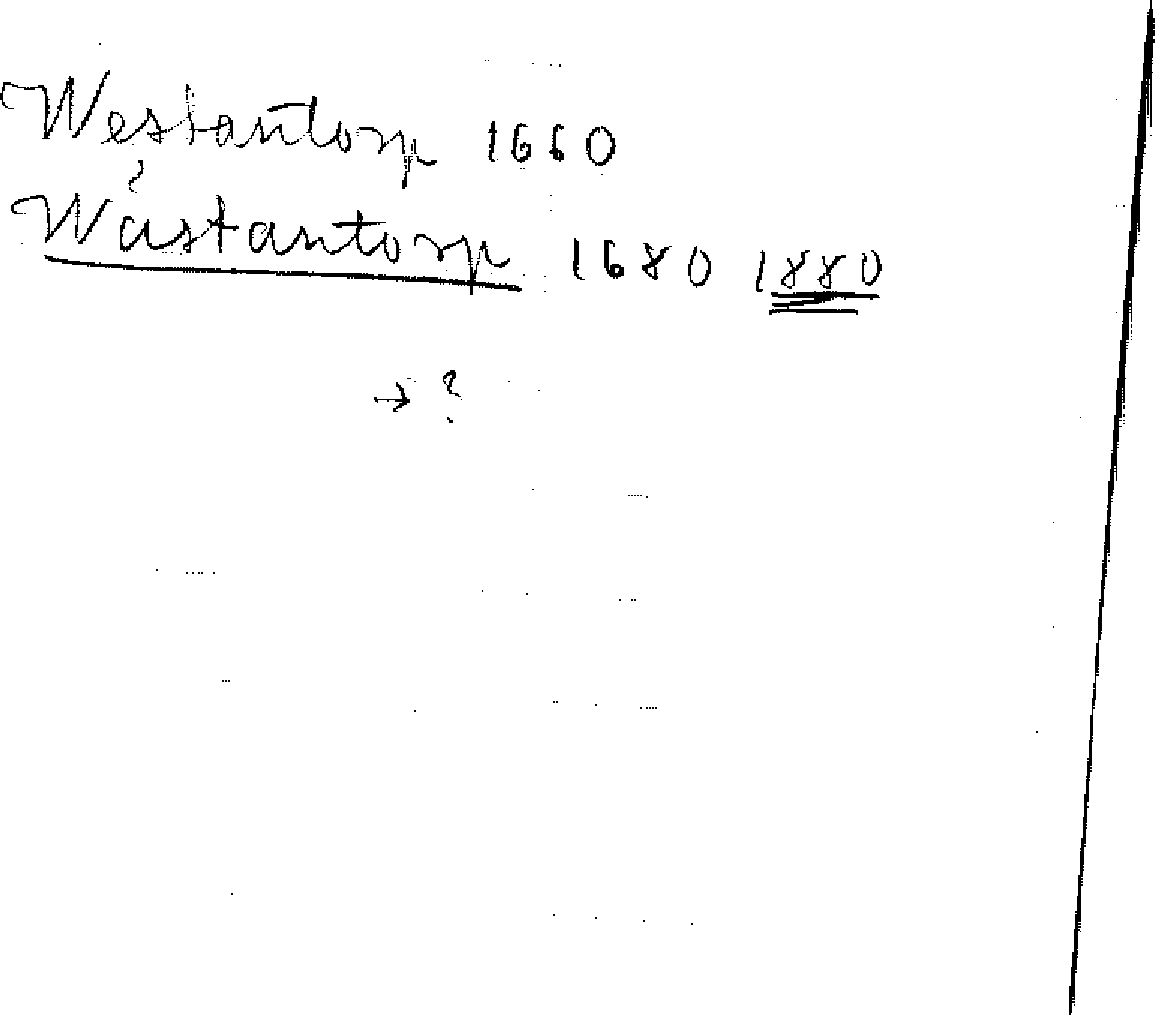 Westantorp 1660
Wästantorp 1680 1880
→ ?